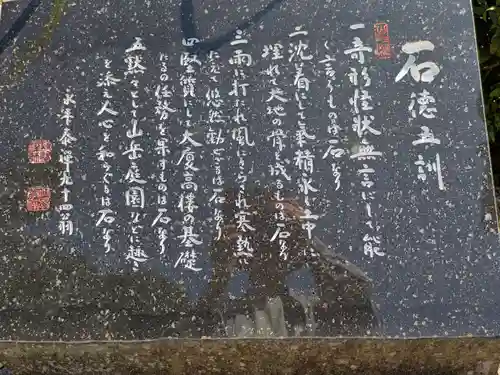 石徳五訓
一 奇形怪状無言にして能
く言うものは石なり
二 沈着にして気精永く土中に
埋れて大地の骨と成るものは石なり
三 雨に打たれ風にさらされ寒熱に
たえて悠然動ぜざるは石なり
四 堅質にして大廈高楼の基礎
たるの任務を果すものは石なり
五 黙々として山岳庭園などに趣き
を添え人心を和らぐるは石なり
永平泰禅九十四翁